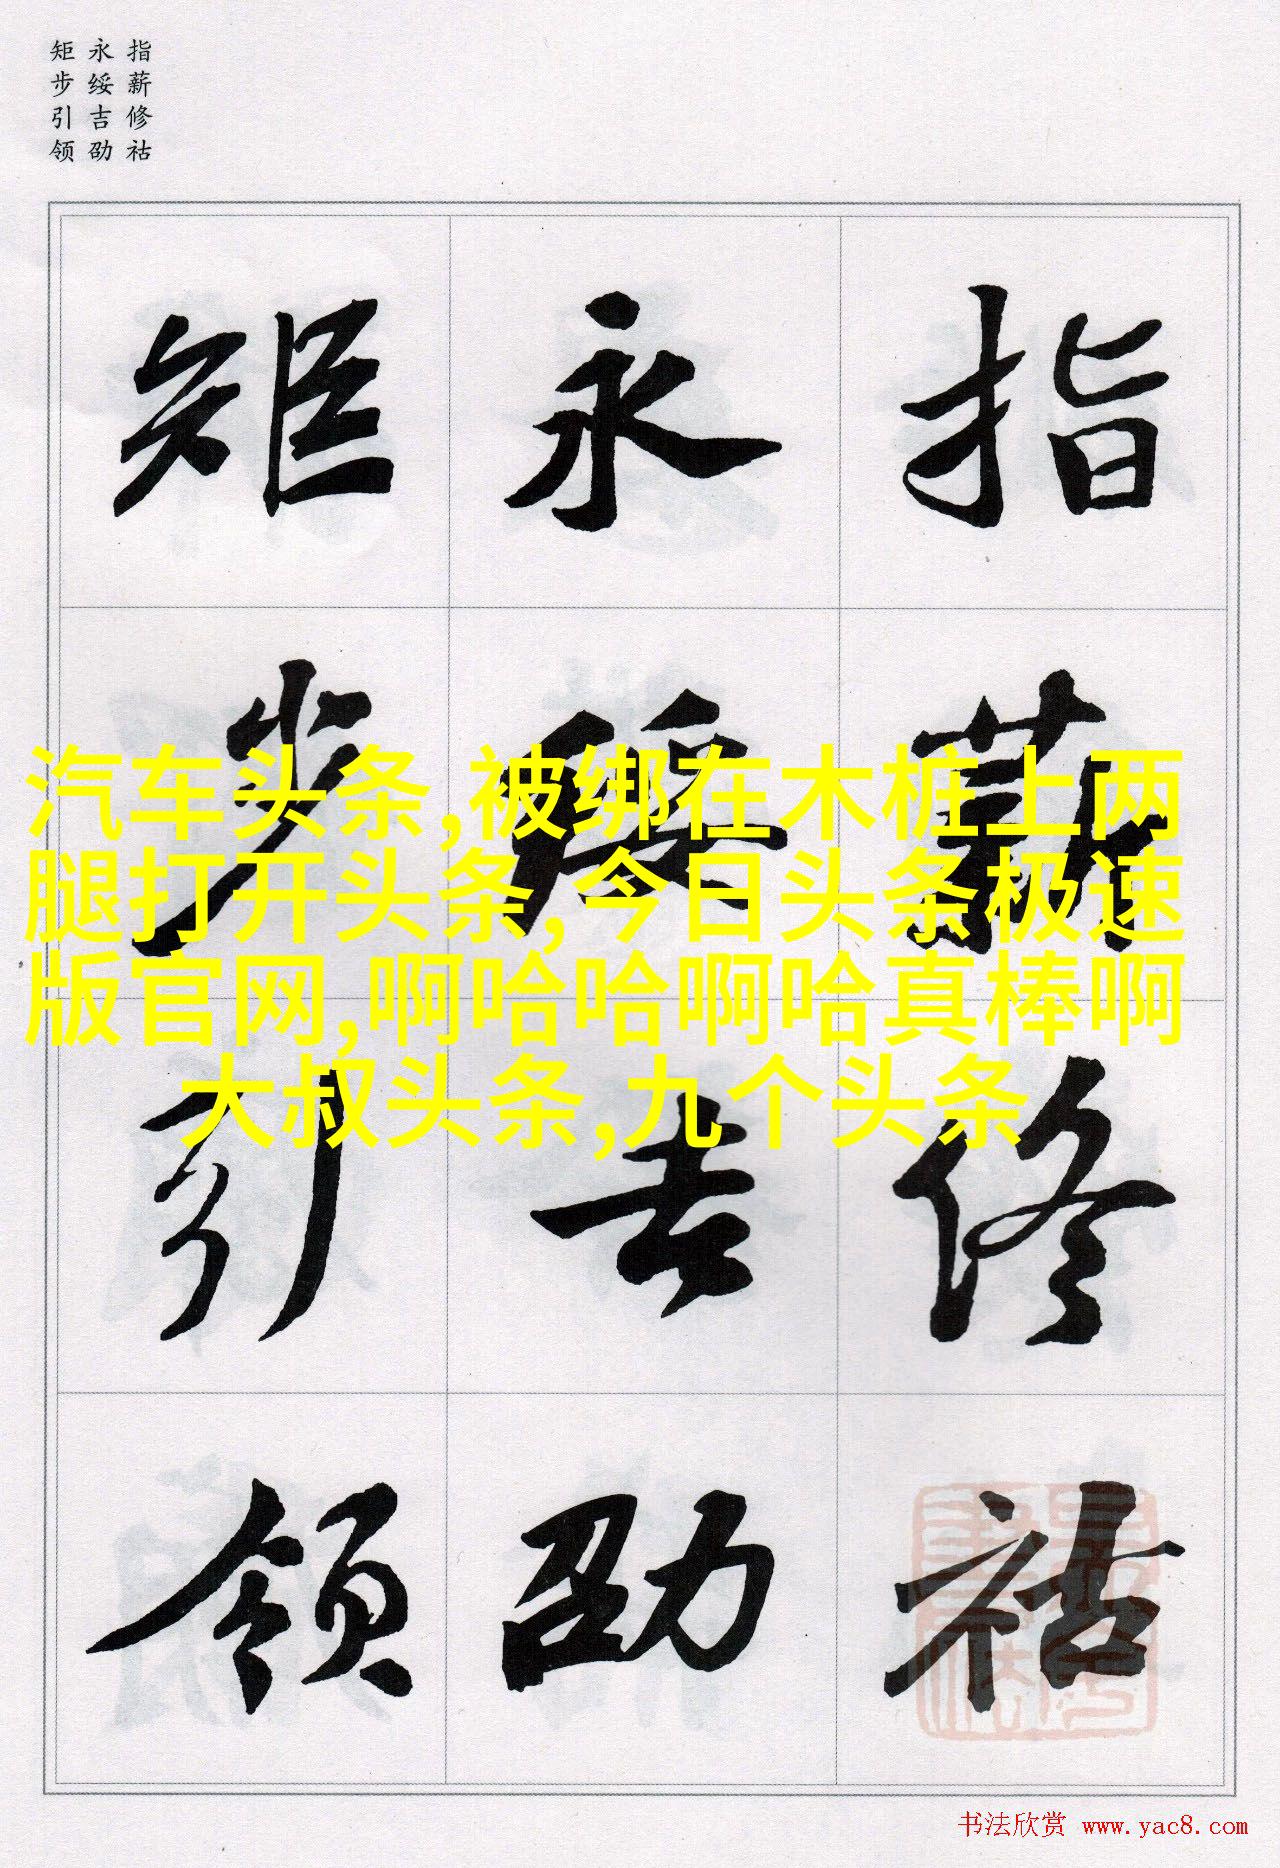 指薪修祜
永绥吉劭
矩步引领
指薪修祜
永绥吉劭
矩步引领
汽车头条,被绑在木桩上两
腿打开头条,今日头条极速
版官网,啊哈哈啊哈真棒啊
大叔头条,九个头条
书法欣赏 www.yac8.com